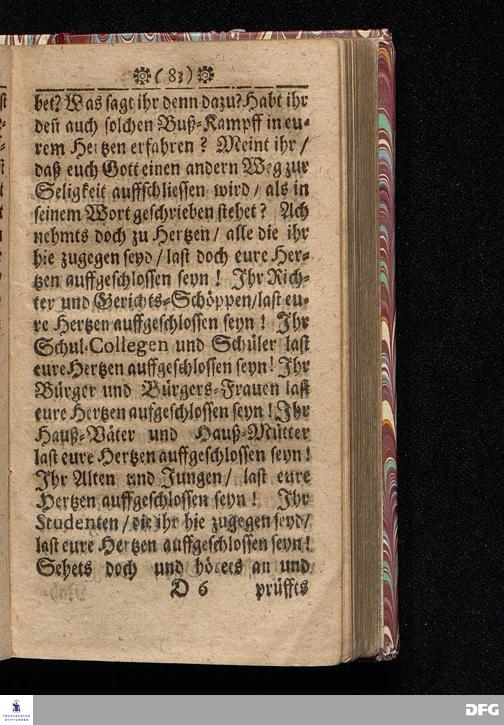 (83)
bet? Was sagt ihr denn dazu? Habt ihr
deñ auch solchen Buß-Kampff in eu-
rem Hertzen erfahren? Meint ihr /
daß euch Gott einen andern Weg zur
Seligkeit auffschliessen wird / als in
seinem Wort geschrieben stehet? Ach
nehmts doch zu Hertzen / alle die ihr
hie zugegen seyd / last doch eure Her-
tzen auffgeschlossen seyn! Ihr Rich-
ter und Gerichts-Schöppen/last eu-
re Hertzen auffgeschlossen seyn! Ihr
Schul-Collegen und Schüler last
eure Hertzen auffgeschlossen seyn! Ihr
Bürger und Bürgers-Frauen last
eure Hertzen aufgeschlossen seyn! Ihr
Hauß-Väter und Hauß-Mütter
last eure Hertzen auffgeschlossen seyn!
Ihr Alten und Jungen/ last eure
Hertzen auffgeschlossen seyn! Ihr
Studenten / die ihr hie zugegen seyd/
last eure Hertzen auffgeschlossen seyn!
Sehets doch und hörets an und
D 6 prüffts
FRANCKESCHE STIFTUNGEN
DFG